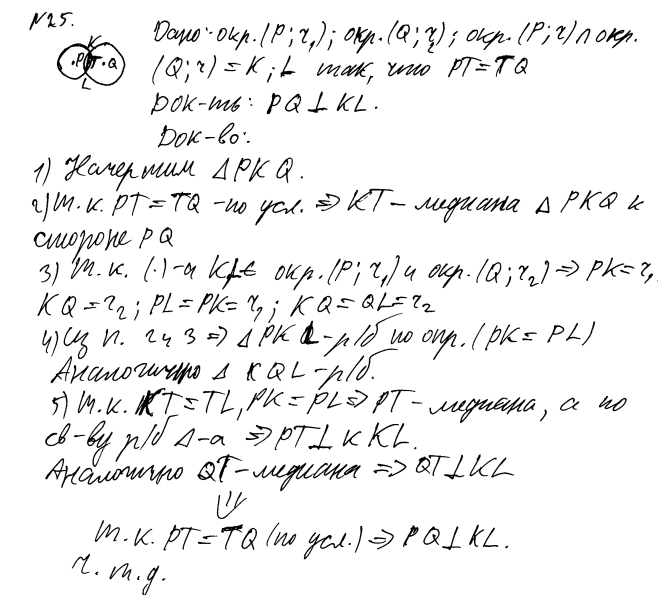 N25.
K
P T Q
L
Дано: окр.(P; r₁); окр.(Q; r₂); окр.(P; r) ∩ окр.
(Q; r) = K; L так, что PT = TQ
Док-ть: PQ ⊥ KL.
Док-во:
1) Начертим Δ PKQ.
2) т.к. PT = TQ - по усл. ⇒ KT - медиана Δ PKQ к
стороне PQ
3) т.к. (·)-и K, L ∈ окр.(P; r₁) и окр.(Q; r₂) ⇒ PK = r₁
KQ = r₂; PL = PK = r₁; KQ = QL = r₂
4) Из п. 2 и 3 ⇒ Δ PKL - р/б по опр. (PK = PL)
Аналогично Δ KQL - р/б.
5) т.к. KT = TL, PK = PL ⇒ PT - медиана, а по
св-ву р/б Δ-а ⇒ PT ⊥ к KL.
Аналогично QT - медиана ⇒ QT ⊥ KL
⇓
т.к. PT = TQ (по усл.) ⇒ PQ ⊥ KL.
ч.т.д.